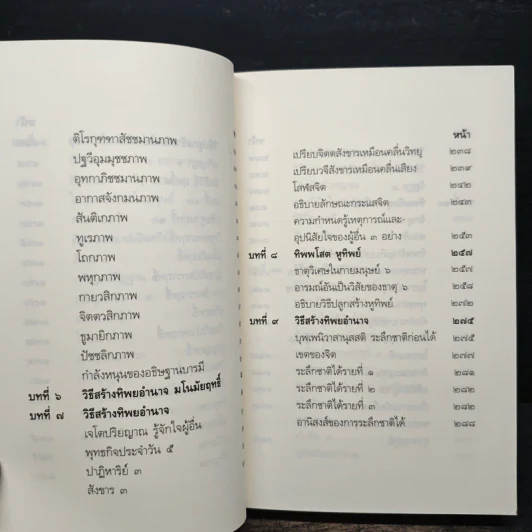 ติโรกุฑฑาสัชชมานภาพ
ปฐวีอุมมุชชภาพ
อุทกาภิชชมานภาพ
อากาสจังกมนภาพ
สันติเกภาพ
ทูเรภาพ
โถกภาพ
พหุกภาพ
กายวสิกภาพ
จิตตวสิกภาพ
ธูมายิกภาพ
ปัชชลิกภาพ
กำลังหนุนของอธิษฐานบารมี
บทที่ ๖ วิธีสร้างทิพยอำนาจ มโนมัยฤทธิ์
บทที่ ๗ วิธีสร้างทิพยอำนาจ
เจโตปริยญาณ รู้จักใจผู้อื่น
พุทธกิจประจำวัน ๕
ปาฏิหาริย์ ๓
สังขาร ๓
หน้า
เปรียบจิตตสังขารเหมือนคลื่นวิทยุ ๒๓๘
เปรียบวจีสังขารเหมือนคลื่นเสียง ๒๓๙
โสฬสจิต ๒๔๒
อธิบายลักษณะกระแสจิต ๒๔๓
ความกำหนดรู้เหตุการณ์และ-
อุปนิสัยใจของผู้อื่น ๓ อย่าง ๒๕๓
บทที่ ๘ ทิพพโสต หูทิพย์ ๒๕๗
ธาตุวิเศษในกายมนุษย์ ๖ ๒๕๗
อารมณ์อันเป็นวิสัยของธาตุ ๖ ๒๕๘
อธิบายวิธีปลูกสร้างหูทิพย์ ๒๗๒
บทที่ ๙ วิธีสร้างทิพยอำนาจ ๒๗๕
บุพเพนิวาสานุสสติ ระลึกชาติก่อนได้ ๒๗๕
เขตของจิต ๒๗๗
ระลึกชาติได้รายที่ ๑ ๒๘๘
ระลึกชาติได้รายที่ ๒ ๒๘๘
ระลึกชาติได้รายที่ ๓ ๒๘๘
อานิสงส์ของการระลึกชาติได้ ๒๘๘